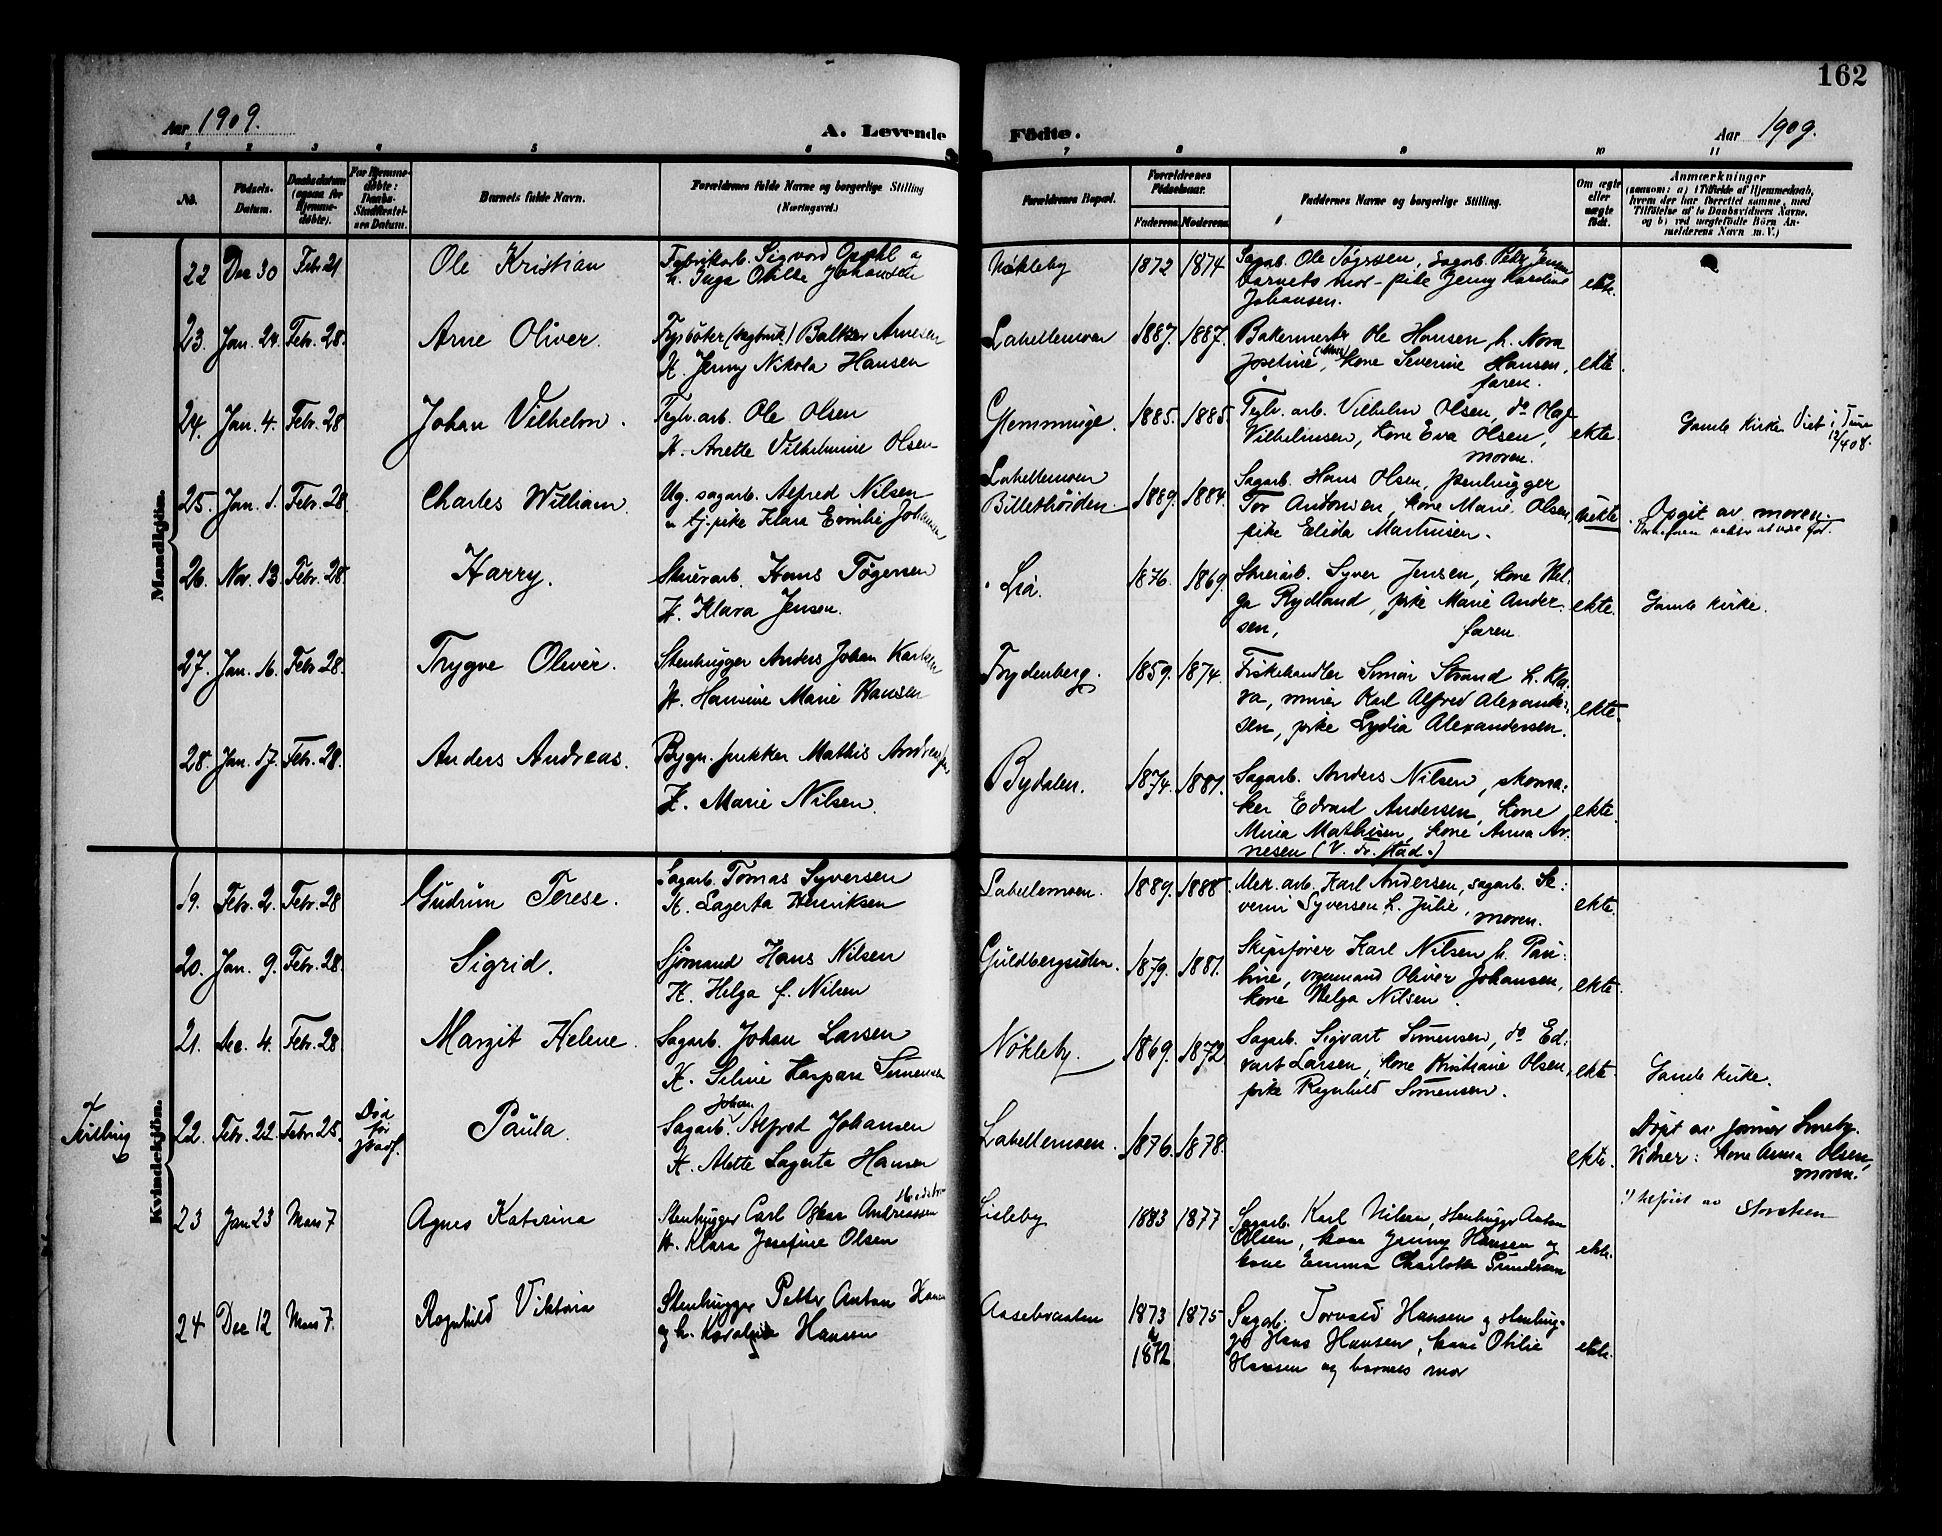 162
Aar 1909.
A. Levende Fødte.
Aar 1909.
1 2 3 4 5 6 7 8 9 10 11
No.
Fødsels-Datum.
Daabsdatum (ogsaa for Hjemmedøbte).
For Hjemmedøbte: Daabs-Stadfæstelsens Datum.
Barnets fulde Navn.
Forældrenes fulde Navne og borgerlige Stilling (Næringsvei.)
Forældrenes Bopæl.
Forældrenes Fødselsaar.
Faderens Moderens
Faddernes Navne og borgerlige Stilling.
Om ægte eller uægte født.
Anmærkninger
(saasom: a) i Tilfælde af Hjemmedaab, hvem der har forrettet samme, med Tilføielse af to Daabsvidners Navne, og b) ved uægtefødte Børn Anmelderens Navn m. V.)
Mandkjøn.
22 Dec 30 Febr 21 Ole Kristian
Fabrikarb. Sigvard Opdal
h. Inga Otilie Johansen
Nökleby 1872 1874
Sagarb. Ole Tögersen, sagarb. Petter Jensen
barnets mor - pike Jenny Karoline
Johansen.
ekte.
23. Jan. 24. Febr. 28. Arne Oliver.
Fyrbøter (sagbruk) Baltser Arnesen
H. Jenny Nikola Hansen
Labellemoen 1887. 1887.
Bakermester Ole Hansen h. Nora
Josefine, kone Severine Hansen,
faren.
ekte.
24. Jan. 4. Febr. 28 Johan Vilhelm.
Teglv.arb. Ole Olsen
H. Anette Vilhelmine Olsen
Glemminge. 1885. 1885.
Teglv. arb. Vilhelm Olsen, do Olaf
Vilhelmsen, kone Eva Olsen,
moren.
ekte.
Gamle kirke. Viet i Tune
12/4 08.
25. Jan. 1. Febr. 28 Charles William.
Ug. sagarb. Alfred Nilsen
tj.pike Klara Emilie Johansen
Labellemoen
Billethöiden. 1889. 1884.
Sagarb. Hans Olsen, stenhugger
Tor Antonsen, kone Marie Olsen,
pike Elida Martinsen.
uekte.
Opgit av moren.
26. Nov. 13 Febr. 28. Harry.
Skuerarb. Hans Tögersen
H. Klara Jensen.
Lid. 1876. 1869.
Skuerarb. Syver Jensen, kone Hel-
ga Rydland, pike Marie Ander-
sen, faren
ekte.
Gamle kirke.
27. Jan. 16. Febr. 28. Trygve Oliver.
Stenhugger Anders Johan Karlsen
H. Hansine Marie Hansen
Frydenberg. 1859. 1874.
Fiskehandler Simon Strand h. Kla-
ra, minér Karl Alfred Alexander-
sen, pike Lydia Alexandersen.
ekte.
28. Jan. 17. Febr. 28. Anders Andreas.
Bygn.snekker Mathis Andreassen
H. Marie Nilsen.
Bydalen. 1874. 1881.
Sagarb. Anders Nilsen, skoma-
ker Edvard Andersen, kone
Mina Mathisen, kone Anna Ar-
nesen (V. Fr. stad.)
ekte.
Kvindekjøn.
19. Febr. 2. Febr. 28 Gudrun Terese.
Sagarb. Tomas Syversen
H. Lagerta Henriksen
Labellemoen. 1889. 1888.
Mek. arb. Karl Andersen, sagarb. Se-
verin Syversen h. Julie, moren.
ekte.
20. Jan. 9. Febr. 28. Sigrid.
Sjömand Hans Nilsen
H. Helga f. Nilsen
Guldbergsiden. 1879. 1881.
Skipsförer Karl Nilsen h. Pau-
line, Oliver Johansen,
kone Helga Nilsen.
ekte.
21. Dec. 4. Febr. 28 Margit Helene.
Sagarb. Johan Larsen
H. Seline Kaspara Simensen
Nökleby. 1869. 1872.
Sagarb. Sigvart Simensen, do Ed-
vart Larsen, kone Kristiane Olsen,
pike Ragnhild Simensen.
ekte.
Gamle kirke.
Tvilling
22. Febr. 22. Febr. 25. Död för stadf. Paula.
Sagarb. Johan Alfred Johansen
H. Alette Lagerta Hansen
Labellemoen. 1876. 1878.
ekte.
Döpt av jormor Smeby.
Vidner: kone Anna Olsen,
moren.
23 Jan 23 Mars 7 Agnes Katarina
Stenhugger Carl Oskar Andreassen
H. Klara Josefine Olsen
Lisleby 1883 1877
Sagarb. Karl Nilsen, stenhugger Anton
Olsen, kone Jenny Hansen og
kone Emma Charlotte Gundersen
ekte.
24 Dec 12 Mars 7. Ragnhild Viktoria
Stenhugger Petter Anton Hansen
og h. Karoline Hansen
Assebraaten 1873 1875
1872
Sagarb. Torvald Hansen og stenhug-
ger Hans Hansen, kone Otilie
Hansen og barnets mor
ekte.